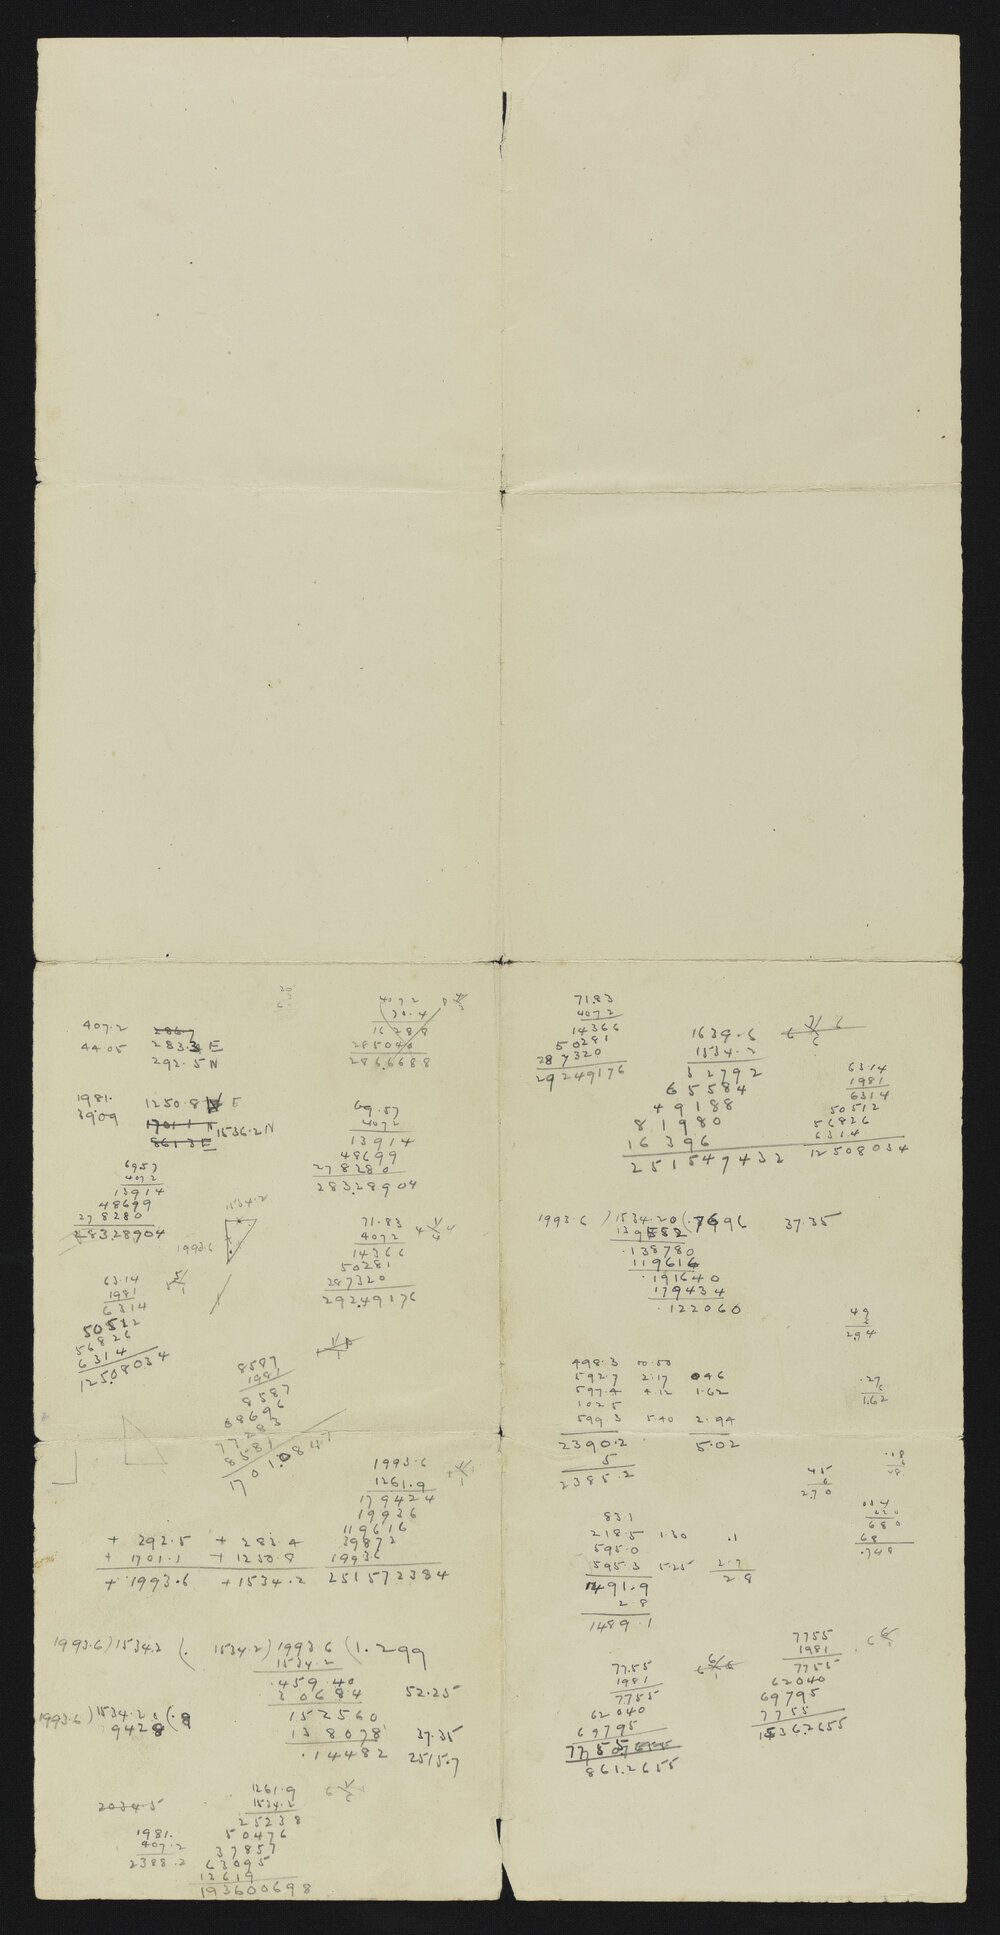 407.2
44.05
283.3 E
292.5 N
4072
16288
285040
2866688
1981.
39.09
1250.8 E
1536.2 N
69.57
4072
13914
48699
278280
28328904
6957
4072
13914
48699
278280
28328904
1534.2
1993.6
71.83
4072
14366
50281
287320
29249176
63.14
1981
6314
50512
56826
6314
12508034
8587
1981
8587
68696
77283
8587
1701.0847
1993.6
1261.9
179424
19936
119616
39872
19936
251572384
+ 292.5 + 283.4
+ 1701.1 + 1250.8
+ 1993.6 + 1534.2
1993.6)1534.2 (.
1534.2)1993 6 (1.299
1534.2
.459.40
3 0684
152560
138078
.14482
52.25
37.35
2515.7
1993.6)1534.2 (.8
9428
2034.5
1981.
407.2
2388.2
1261.9
1534.2
25238
50476
37857
63095
12619
193600698
71.83
4072
14366
50281
287320
29249176
1639.6
1534.2
32792
65584
49188
81980
16396
251547432
63.14
1981
6314
50512
56826
6314
12508034
1993.6 )1534.20(.7696 37.35
139552
.138780
119616
.191640
179434
.122060
49
29.4
498.3 00.50
592.7 2.17 046
597.4 4.12 1.62
102.5
599.3 5.40 2.94
2390.2 5.02
5
2385.2
.27
1.62
45
6
270
680
68
.748
831
218.5 1.30 .1
595.0
595.3 5.25 2.7
1491.9 2.8
2.8
1489.1
77.55
1981
7755
62040
69795
861.2655
7755
1981
7755
62040
69795
7755
15362655